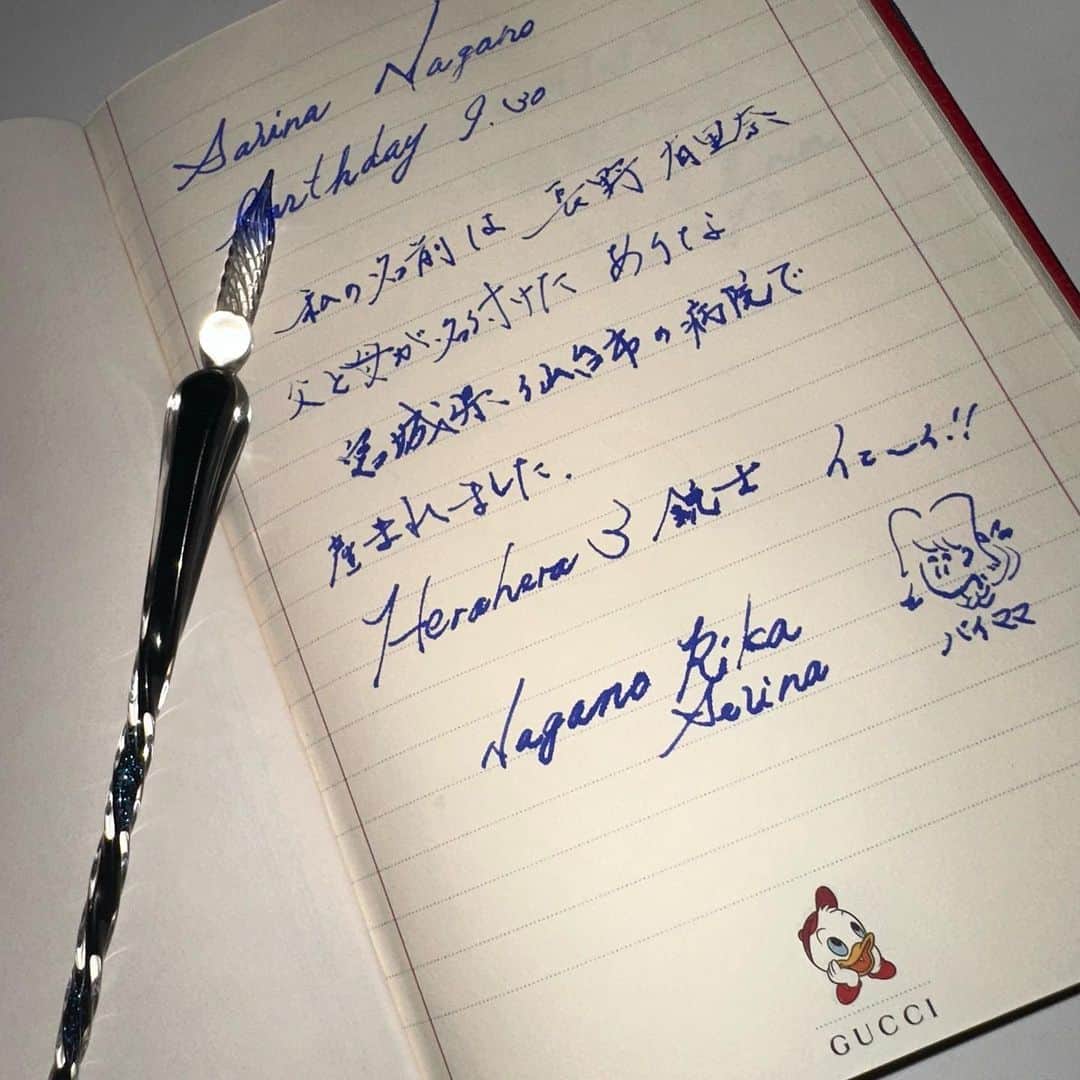 Sarina Nagano
Birthday 9.30
私の名前は 長野 有里奈
父と母が名付けた ありな
宮城県、仙台市の病院で
産まれました.
Herahera 3 銃士 イェーイ!!
パイママ
Nagano Rika
Serina
GUCCI